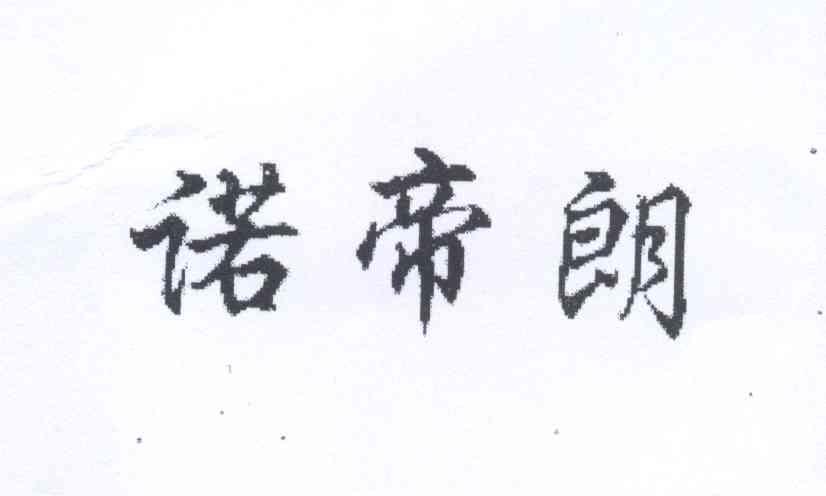 诺帝朗